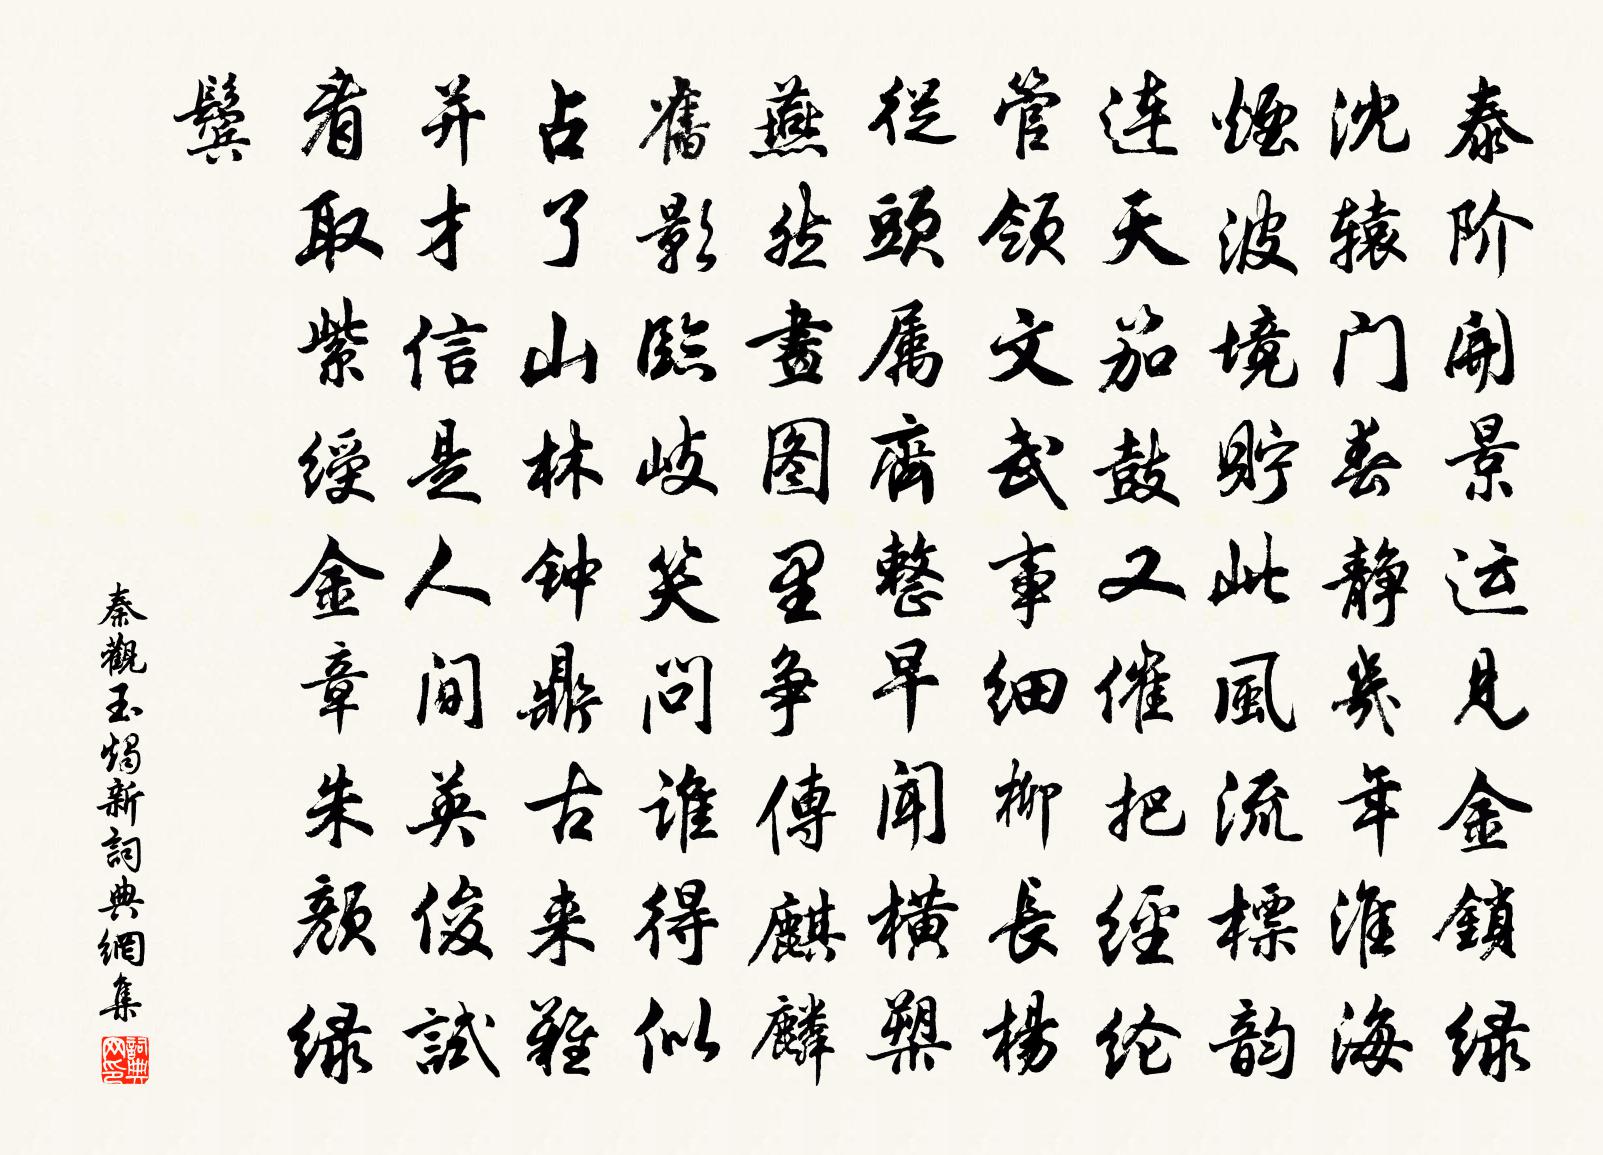 泰阶開景运見金鎖绿
沈辕门春静幾年淮海
煙波境貯此風流標韵
连天笳鼓又催把經纶
管领文武事细柳長楊
從頭属齊整早闻横槊
燕然畫图里争傳麒麟
舊影臨岐笑问谁得似
占了山林钟鼎古来難
并才信是人间英俊試
看取紫綬金章朱颜绿
鬓
秦觀玉燭新詞典網集
詞典网印